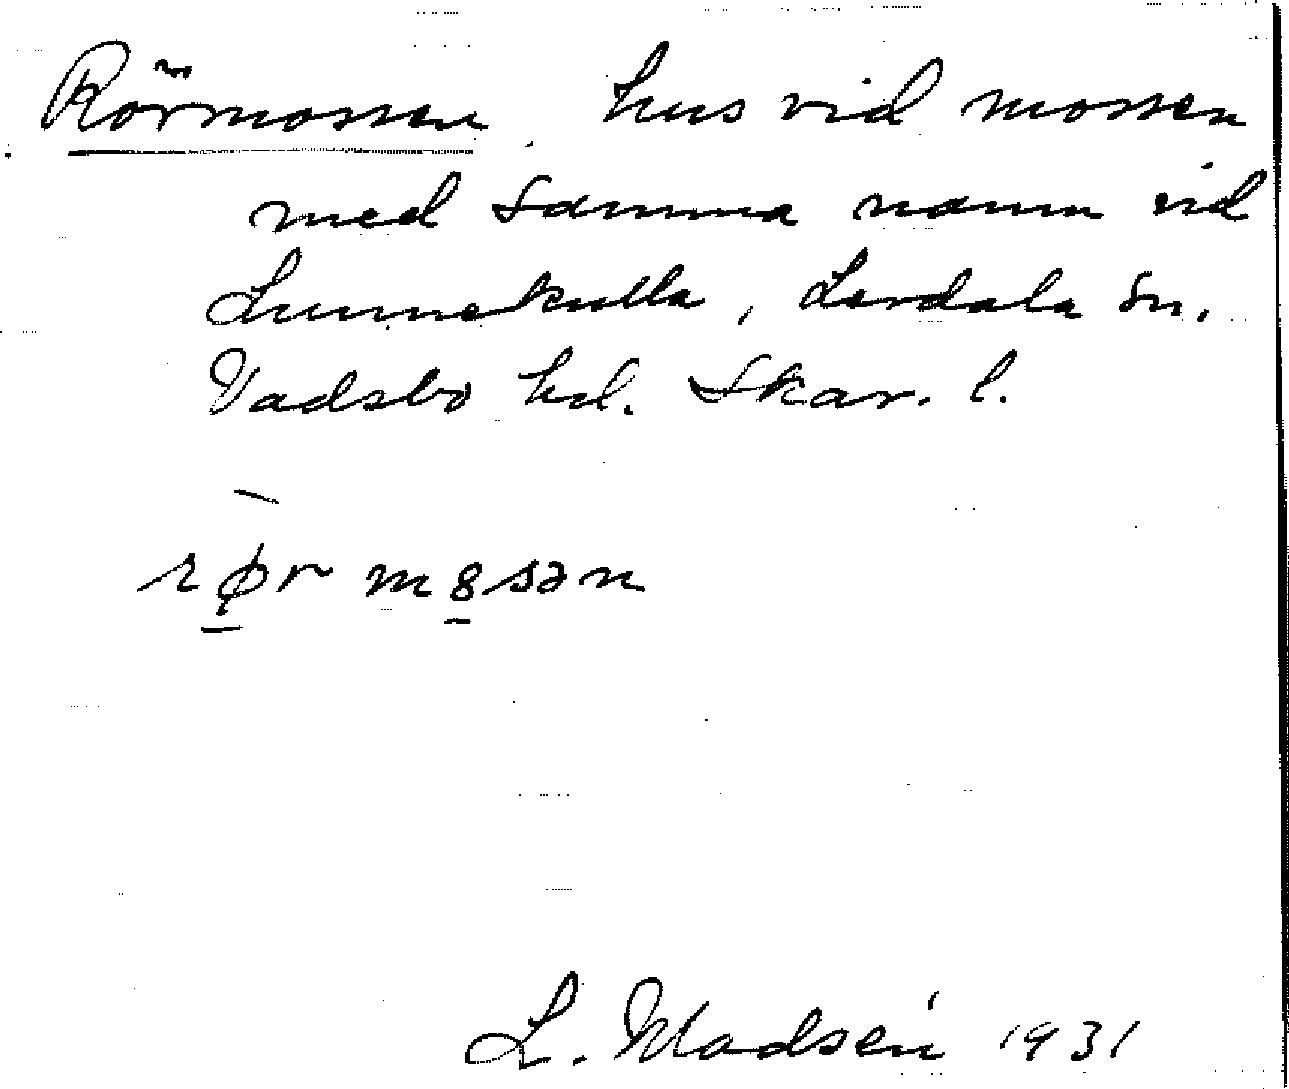 Rörmossen hus vid mossen
med samma namn vid
Lunnekulla, Lerdala sn.
Vadsbo hd. Skar. l.
rør m8sən
L. Madsén 1931